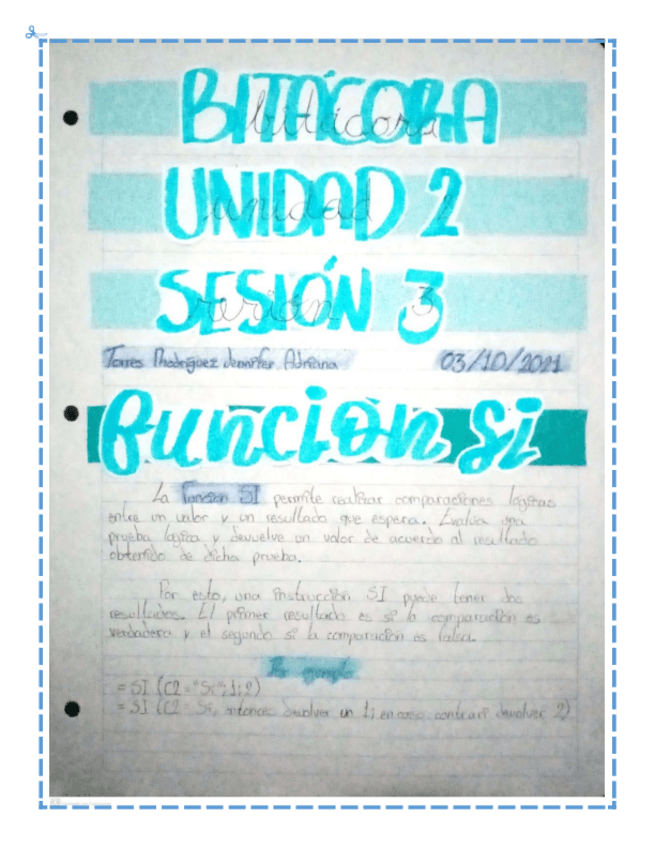 BITÁCORA
bitácora
UNIDAD 2
unidad 2
SESIÓN 3
sesión 3
Torres Rodríguez Jennifer Adriana 03/10/2021
función si
La Función SI permite realizar comparaciones lógicas
entre un valor y un resultado que espera. Evalúa una
prueba lógica y devuelve un valor de acuerdo al resultado
obtenido de dicha prueba.
Por esto, una instrucción SI puede tener dos
resultados. El primer resultado es si la comparación es
verdadera y el segundo si la comparación es falsa.
Por ejemplo
=SI (C2="Sí";1;2)
=SI (C2= Sí, entonces devolver un 1; en caso contrari devolver 2)